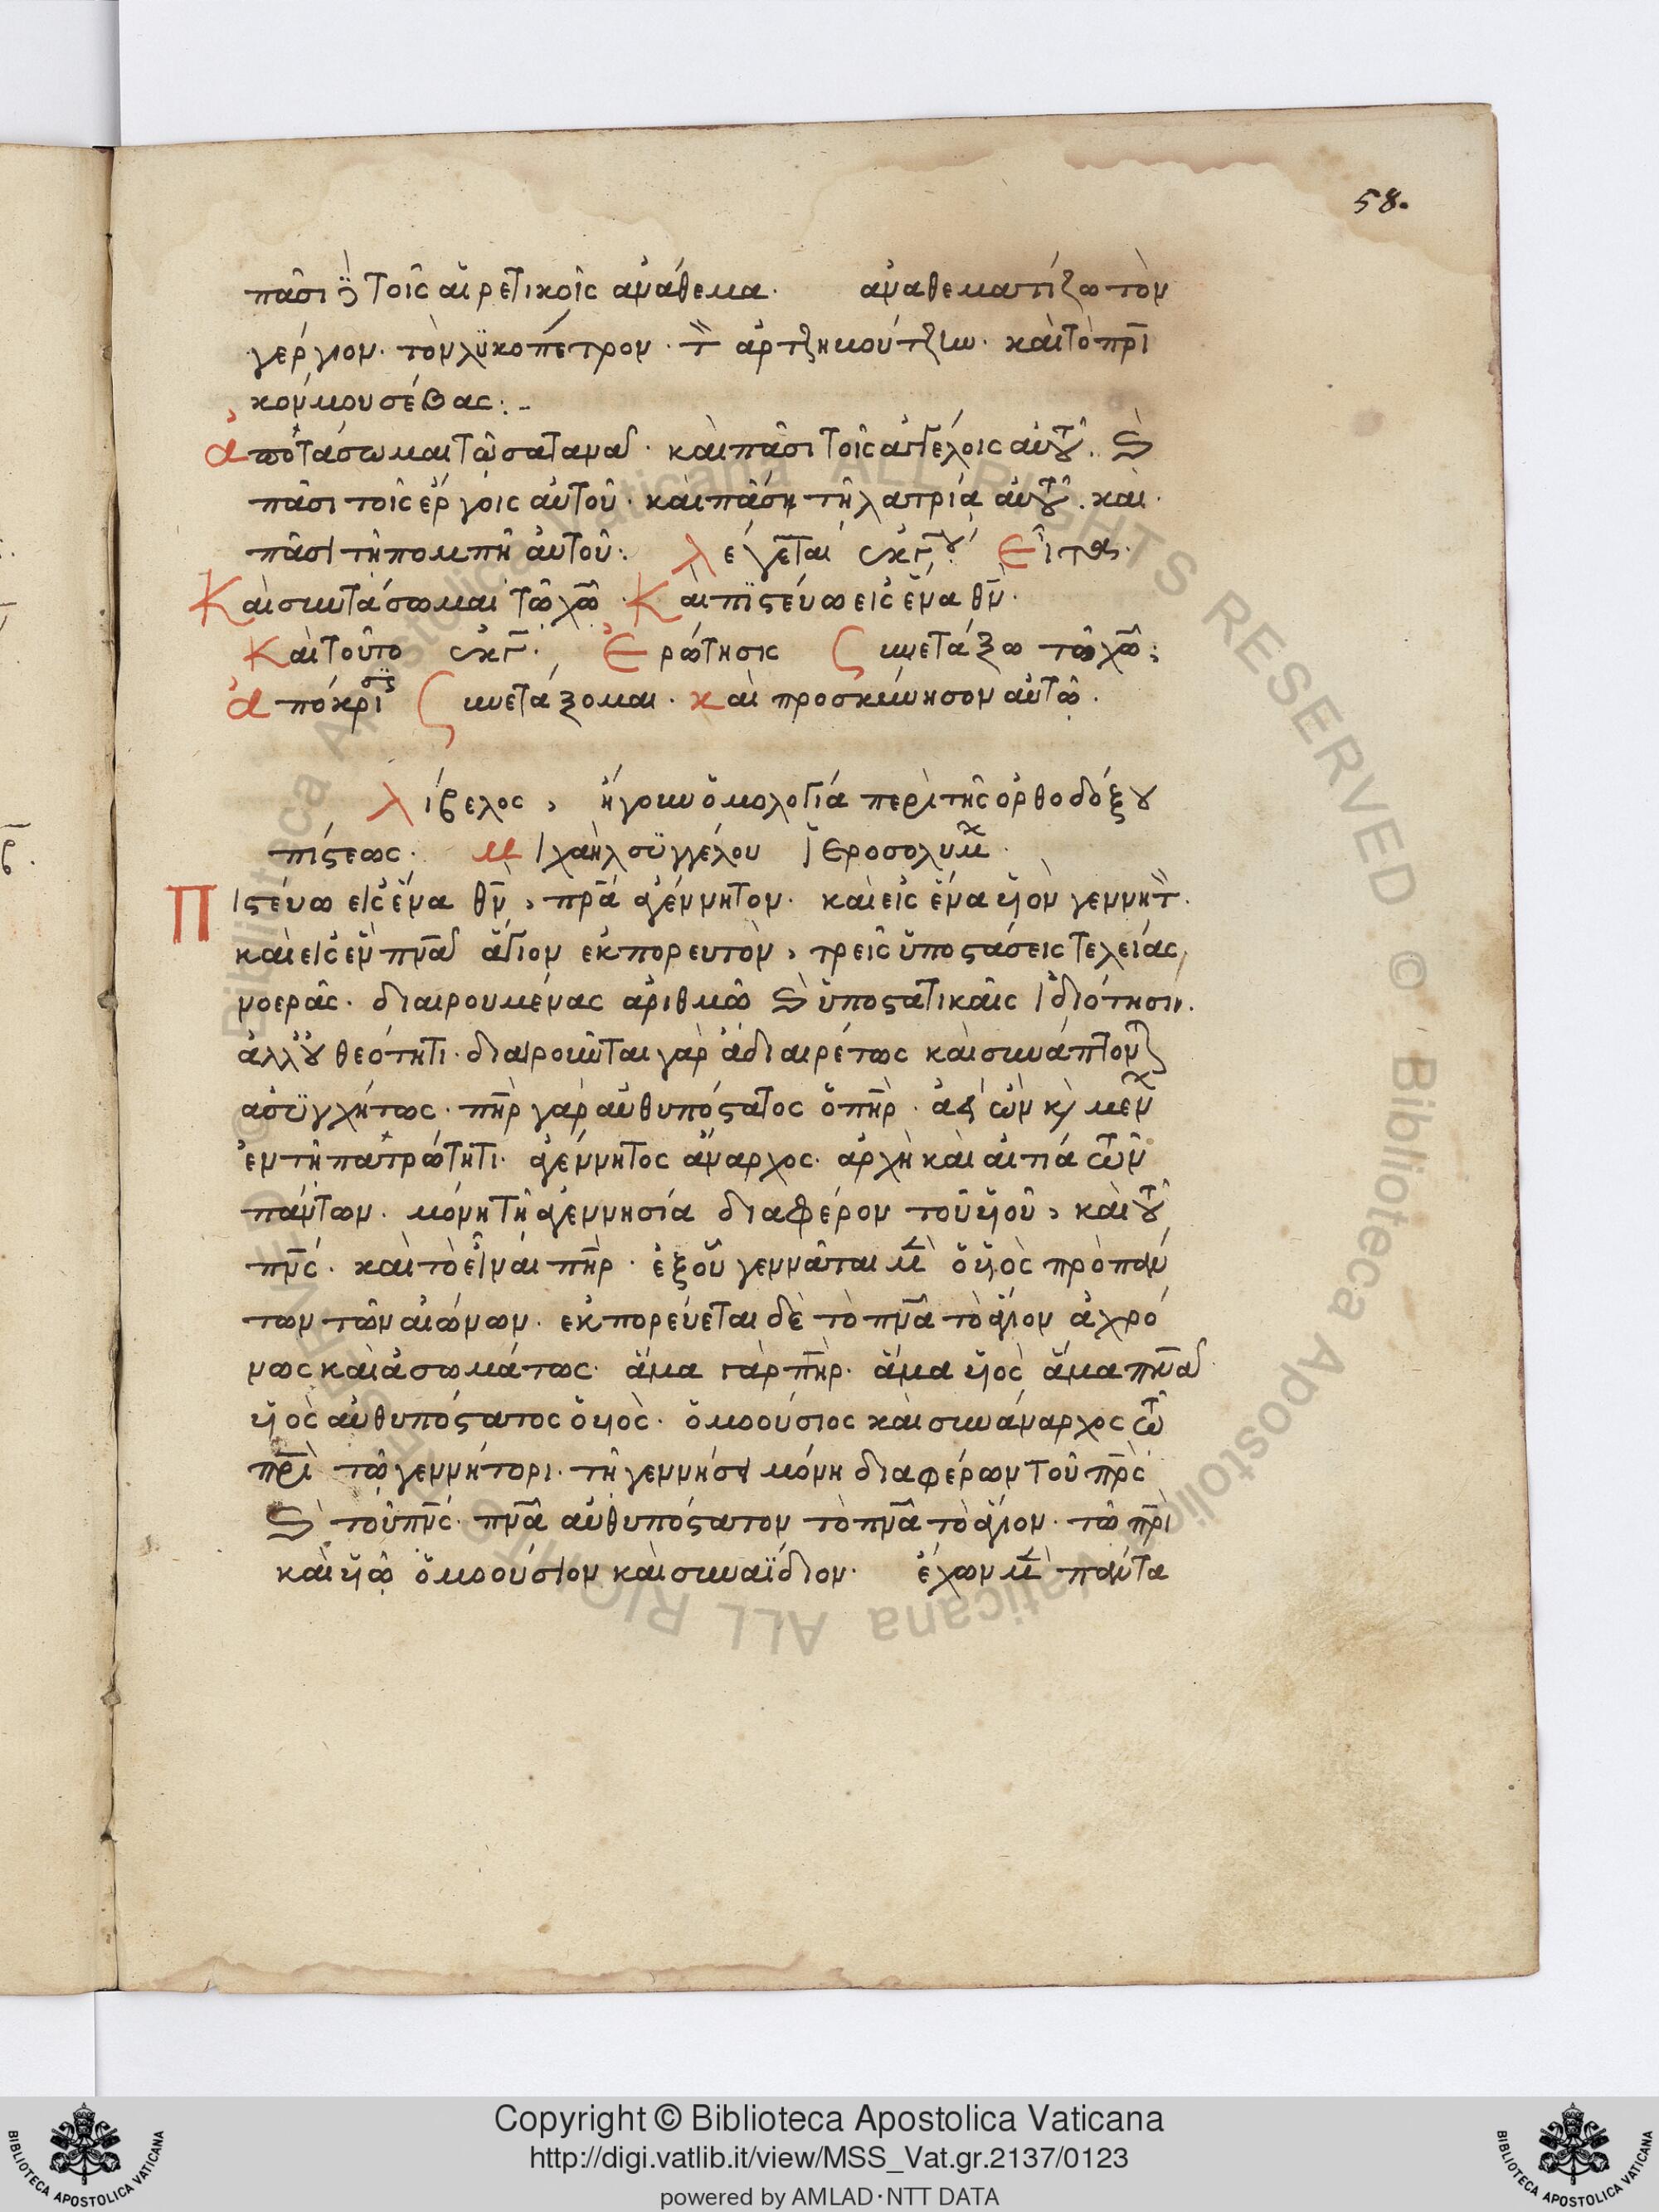 58.
πᾶσι τοῖς αἱρετικοῖς ἀνάθεμα· ἀναθεματίζω τὸν
γέργιον· τὸν λϋκοπέτρον· ἀρτζηκούτζιω· καὶ τὸ πρι
κον μουσέβας:-
ἀποτάσωμαι τῶ σατανᾶ· καὶ πᾶσι τοῖς ἀγγέλοις αὐτοῦ. ϗ
πᾶσι τοῖς ἔργοις αὐτοῦ· καὶ πάση τῆ λατρία αὐτοῦ. καὶ·
πάσι τῆ πομπῆ αὐτοῦ: λέγεται ἐκ γ΄ Εἶτα·
Καὶ συντάσωμαι τῶ χῶ· Καὶ πϊστεύω εἰς ἕνα θν·
Καὶ τοῦτο ἐκ γ΄· Ἐρώτησις Συνετάξω τῶ χῶ;
ἀπόκρισϊς Συνεταξομαι· καὶ προσκύνησον αὐτῶ·
λίβελος, ἤγουν ὁμολογία περὶ τῆς ὀρθοδόξου
πίστεως· Μιχαὴλ σϋγγέλου Ἱεροσολύμ·
Πιστεύω εἰς ἕνα θν, πρα ἀγέννητον· καὶ εἰς ἕνα υἱὸν γεννητ·
καὶ εἰς ἓν πνα ἅγιον ἐκπορευτὸν, τρεῖς ὑποστάσεις τελείας,
νοερᾶς· διαιρουμένας ἀριθμῶ ϗ ὑποστατικαῖς ἰδιότησιν.
ἀλλ' οὐ θεότητι· διαιροῦται γὰρ ἀδιαιρέτως καὶ συνάπτοντ
ἀσϋγχήτως· πηρ γὰρ αὐθυπόστατος ὁ πηρ· ἀφ' ὧν κ μεν
ἐν τῆ πατρώτητι· ἀγέννητος ἄναρχος· ἀρχὴ καὶ αἰτιά τῶν
πάντων· μόνη τῆ ἀγεννησία διαφέρον τοῦ υἱοῦ, καὶ τοῦ
πνς· καὶ τὸ εἶναι πηρ· ἐξ οὗ γεννᾶται μὲν ὁ υἱὸς πρὸ πάν
των τῶν αἰώνων· ἐκπορεύεται δὲ τὸ πνα τὸ ἅγιον ἀχρό
νως καὶ ἀσωμάτως· ἅμα γὰρ πηρ· ἅμα υἱὸς ἅμα πνα
υἱὸς αὐθυπόστατος ὁ υἱὸς· ὁμοούσιος καὶ συνάναρχος τῶ
πρι τῶ γεννήτορι· τῆ γεννήσει μόνη διαφέρων τοῦ πρς
ϗ τοῦ πνς· πνα αὐθυπόστατον τὸ πνα τὸ ἅγιον· τῶ πρι
καὶ υἱῶ ὁμοούσιον καὶ συναΐδιον· ἔχων μὲν πάντα
Copyright © Biblioteca Apostolica Vaticana
http://digi.vatlib.it/view/MSS_Vat.gr.2137/0123
powered by AMLAD·NTT DATA
BIBLIOTECA APOSTOLICA VATICANA
BIBLIOTECA APOSTOLICA VATICANA